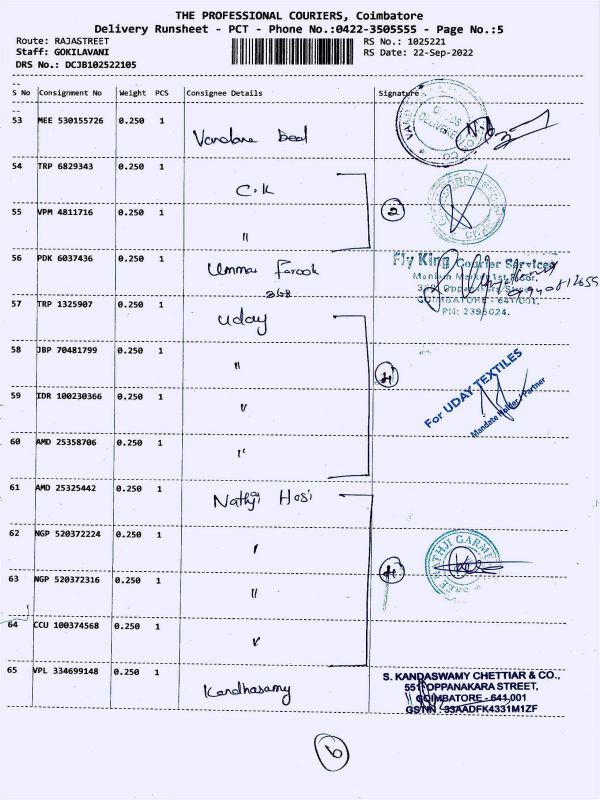 THE PROFESSIONAL COURIERS, Coimbatore
Delivery Runsheet - PCT - Phone No.:0422-3505555 - Page No.:5
Route: RAJASTREET RS No.: 1025221
Staff: GOKILAVANI RS Date: 22-Sep-2022
DRS No.: DCJB102522105
S No Consignment No Weight PCS Consignee Details Signature
53 MEE 530155726 0.250 1 Vandana
54 TRP 6829343 0.250 1 C.K
2
55 VPM 4811716 0.250 1 "
56 PDK 6037436 0.250 1 Umma Farook
368
Fly King Courier Services
1st Floor,
COIMBATORE - 641 001.
PH: 2395024.
57 TRP 1325907 0.250 1 Uday
58 JBP 70481799 0.250 1 "
4
For UDAY TEXTILES
Mandate Holder / Partner
59 IDR 100230366 0.250 1 "
60 AMD 25358706 0.250 1 "
61 AMD 25325442 0.250 1 Nathji Hosi
62 NGP 520372224 0.250 1 "
4
63 NGP 520372316 0.250 1 "
64 CCU 100374568 0.250 1 "
65 VPL 334699148 0.250 1 Kandhasamy
S. KANDASWAMY CHETTIAR & CO.,
551, OPPANAKARA STREET,
COIMBATORE - 641 001
GSTN : 33AADFK4331M1ZF
6